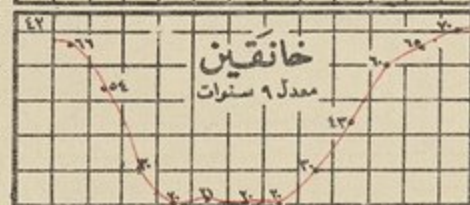 ٤٢
خانقين
معدل ٩ سنوات
٧٠
٦٥
٦٠
٤٣٥
٣٠
٢٠
٢٠
٢٠
٣٠
٥٤
٦٦